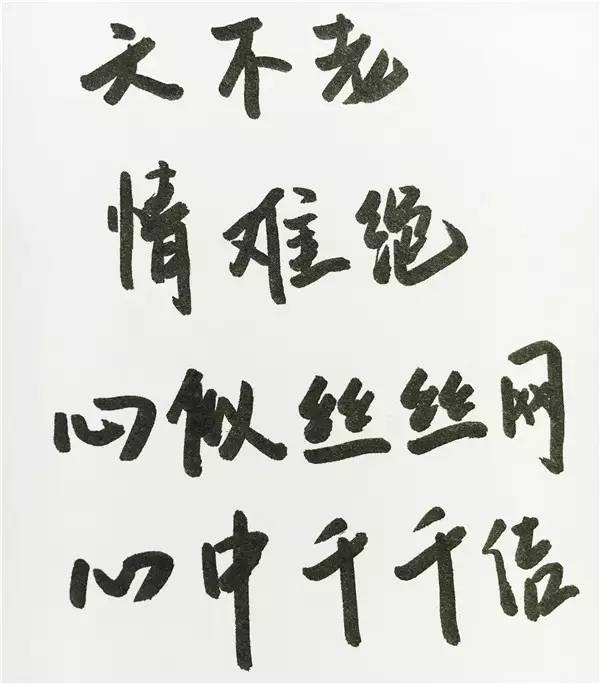 天不老
情难绝
心似丝丝网
心中千千结